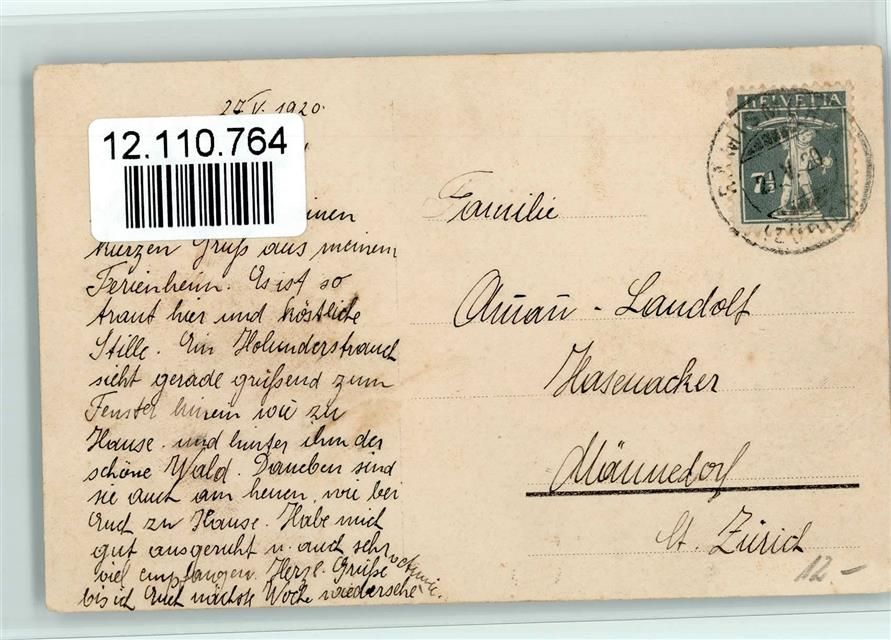 27.V.1920.
12.110.764
einen
kurzen Gruß aus meinem
Ferienheim. Es ist so
traut hier und köstliche
Stille. Ein Holunderstrauch
sieht gerade grüßend zum
Fenster hinein wie zu
Hause. und hinter ihm der
schöne Wald. Daneben sind
sie auch am heuen, wie bei
Euch zu Hause. Habe mich
gut ausgeruht u. auch sehr
viel empfangen. Herzl. Grüße
bis ich Euch nächste Woche wiedersehe
HELVETIA
7½
Familie
Landolt
Hasenacker
Männedorf
Ct. Zürich
12.-